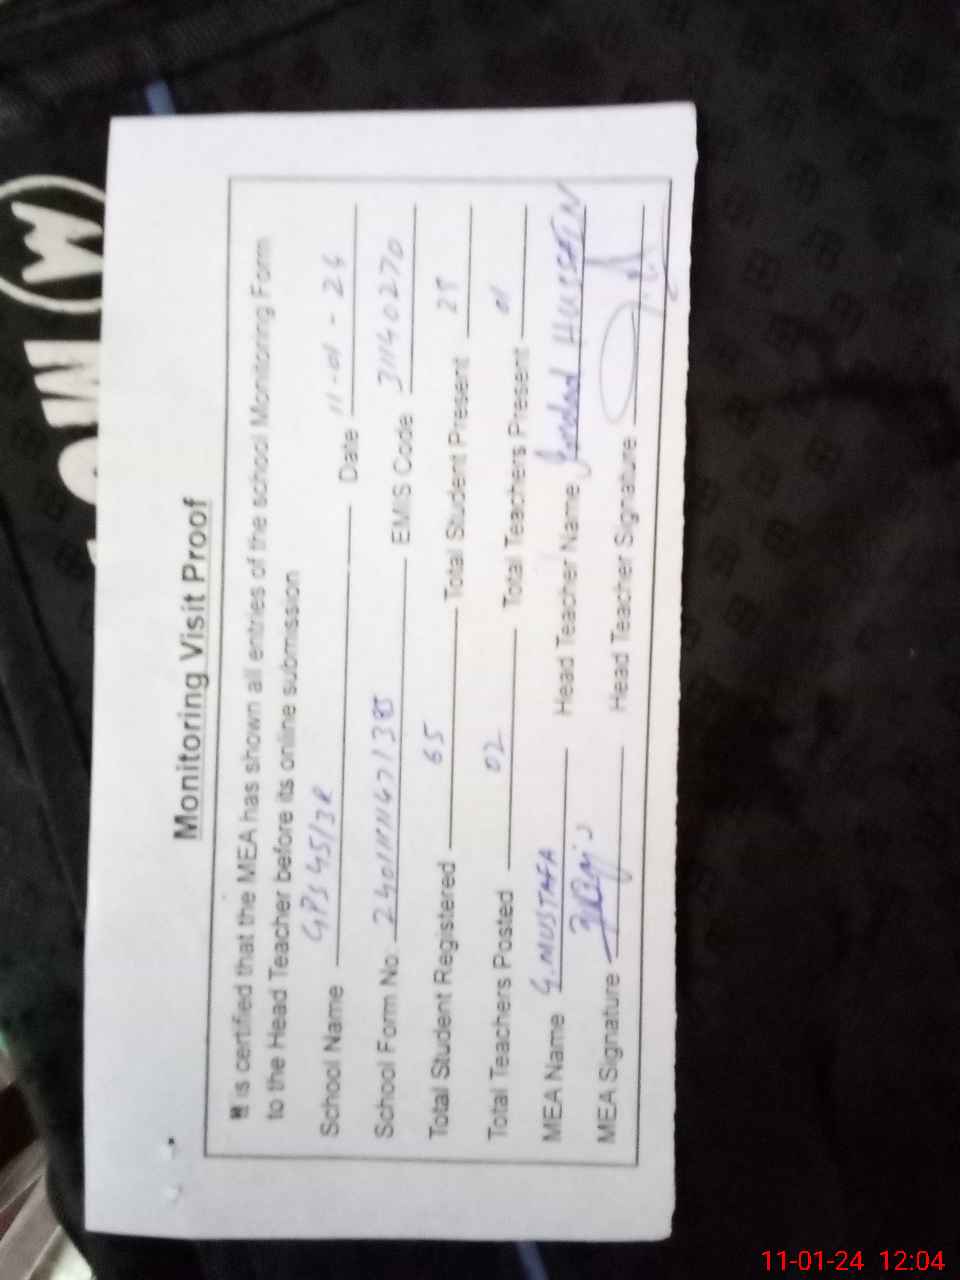 Monitoring Visit Proof
It is certified that the MEA has shown all entries of the school Monitoring Form
to the Head Teacher before its online submission
School Name GPS 45/3R Date 11-01-24
School Form No. EMIS Code 31140270
Total Student Registered 65 Total Student Present
Total Teachers Posted 02 Total Teachers Present 01
MEA Name G.MUSTAFA Head Teacher Name HUSSAIN
MEA Signature Head Teacher Signature
11-01-24 12:04